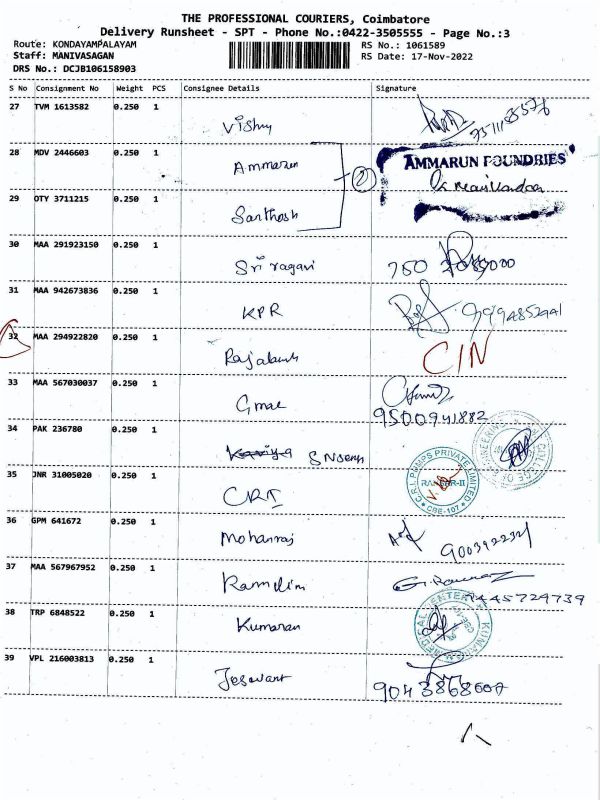 THE PROFESSIONAL COURIERS, Coimbatore
Delivery Runsheet - SPT - Phone No.:0422-3505555 - Page No.:3
Route: KONDAYAMPALAYAM RS No.: 1061589
Staff: MANIVASAGAN RS Date: 17-Nov-2022
DRS No.: DCJB106158903
S No Consignment No Weight PCS Consignee Details Signature
27 TVM 1613582 0.250 1
Vishnu
28 MDV 2446603 0.250 1
Ammarun AMMARUN FOUNDRIES
2
29 OTY 3711215 0.250 1
Santhosh
30 MAA 291923150 0.250 1
Sri ragavi
31 MAA 942673836 0.250 1
KPR
32 MAA 294922820 0.250 1
C/N
33 MAA 567030037 0.250 1
Gmae
9500941882
34 PAK 236780 0.250 1
35 JNR 31005020 0.250 1
C.R.I. PUMPS PRIVATE LIMITED
CBE-107
CRI
36 GPM 641672 0.250 1
Mohanraj
37 MAA 567967952 0.250 1
9445729739
38 TRP 6848522 0.250 1
Kumaran
39 VPL 216003813 0.250 1
Jesavant
9043868607